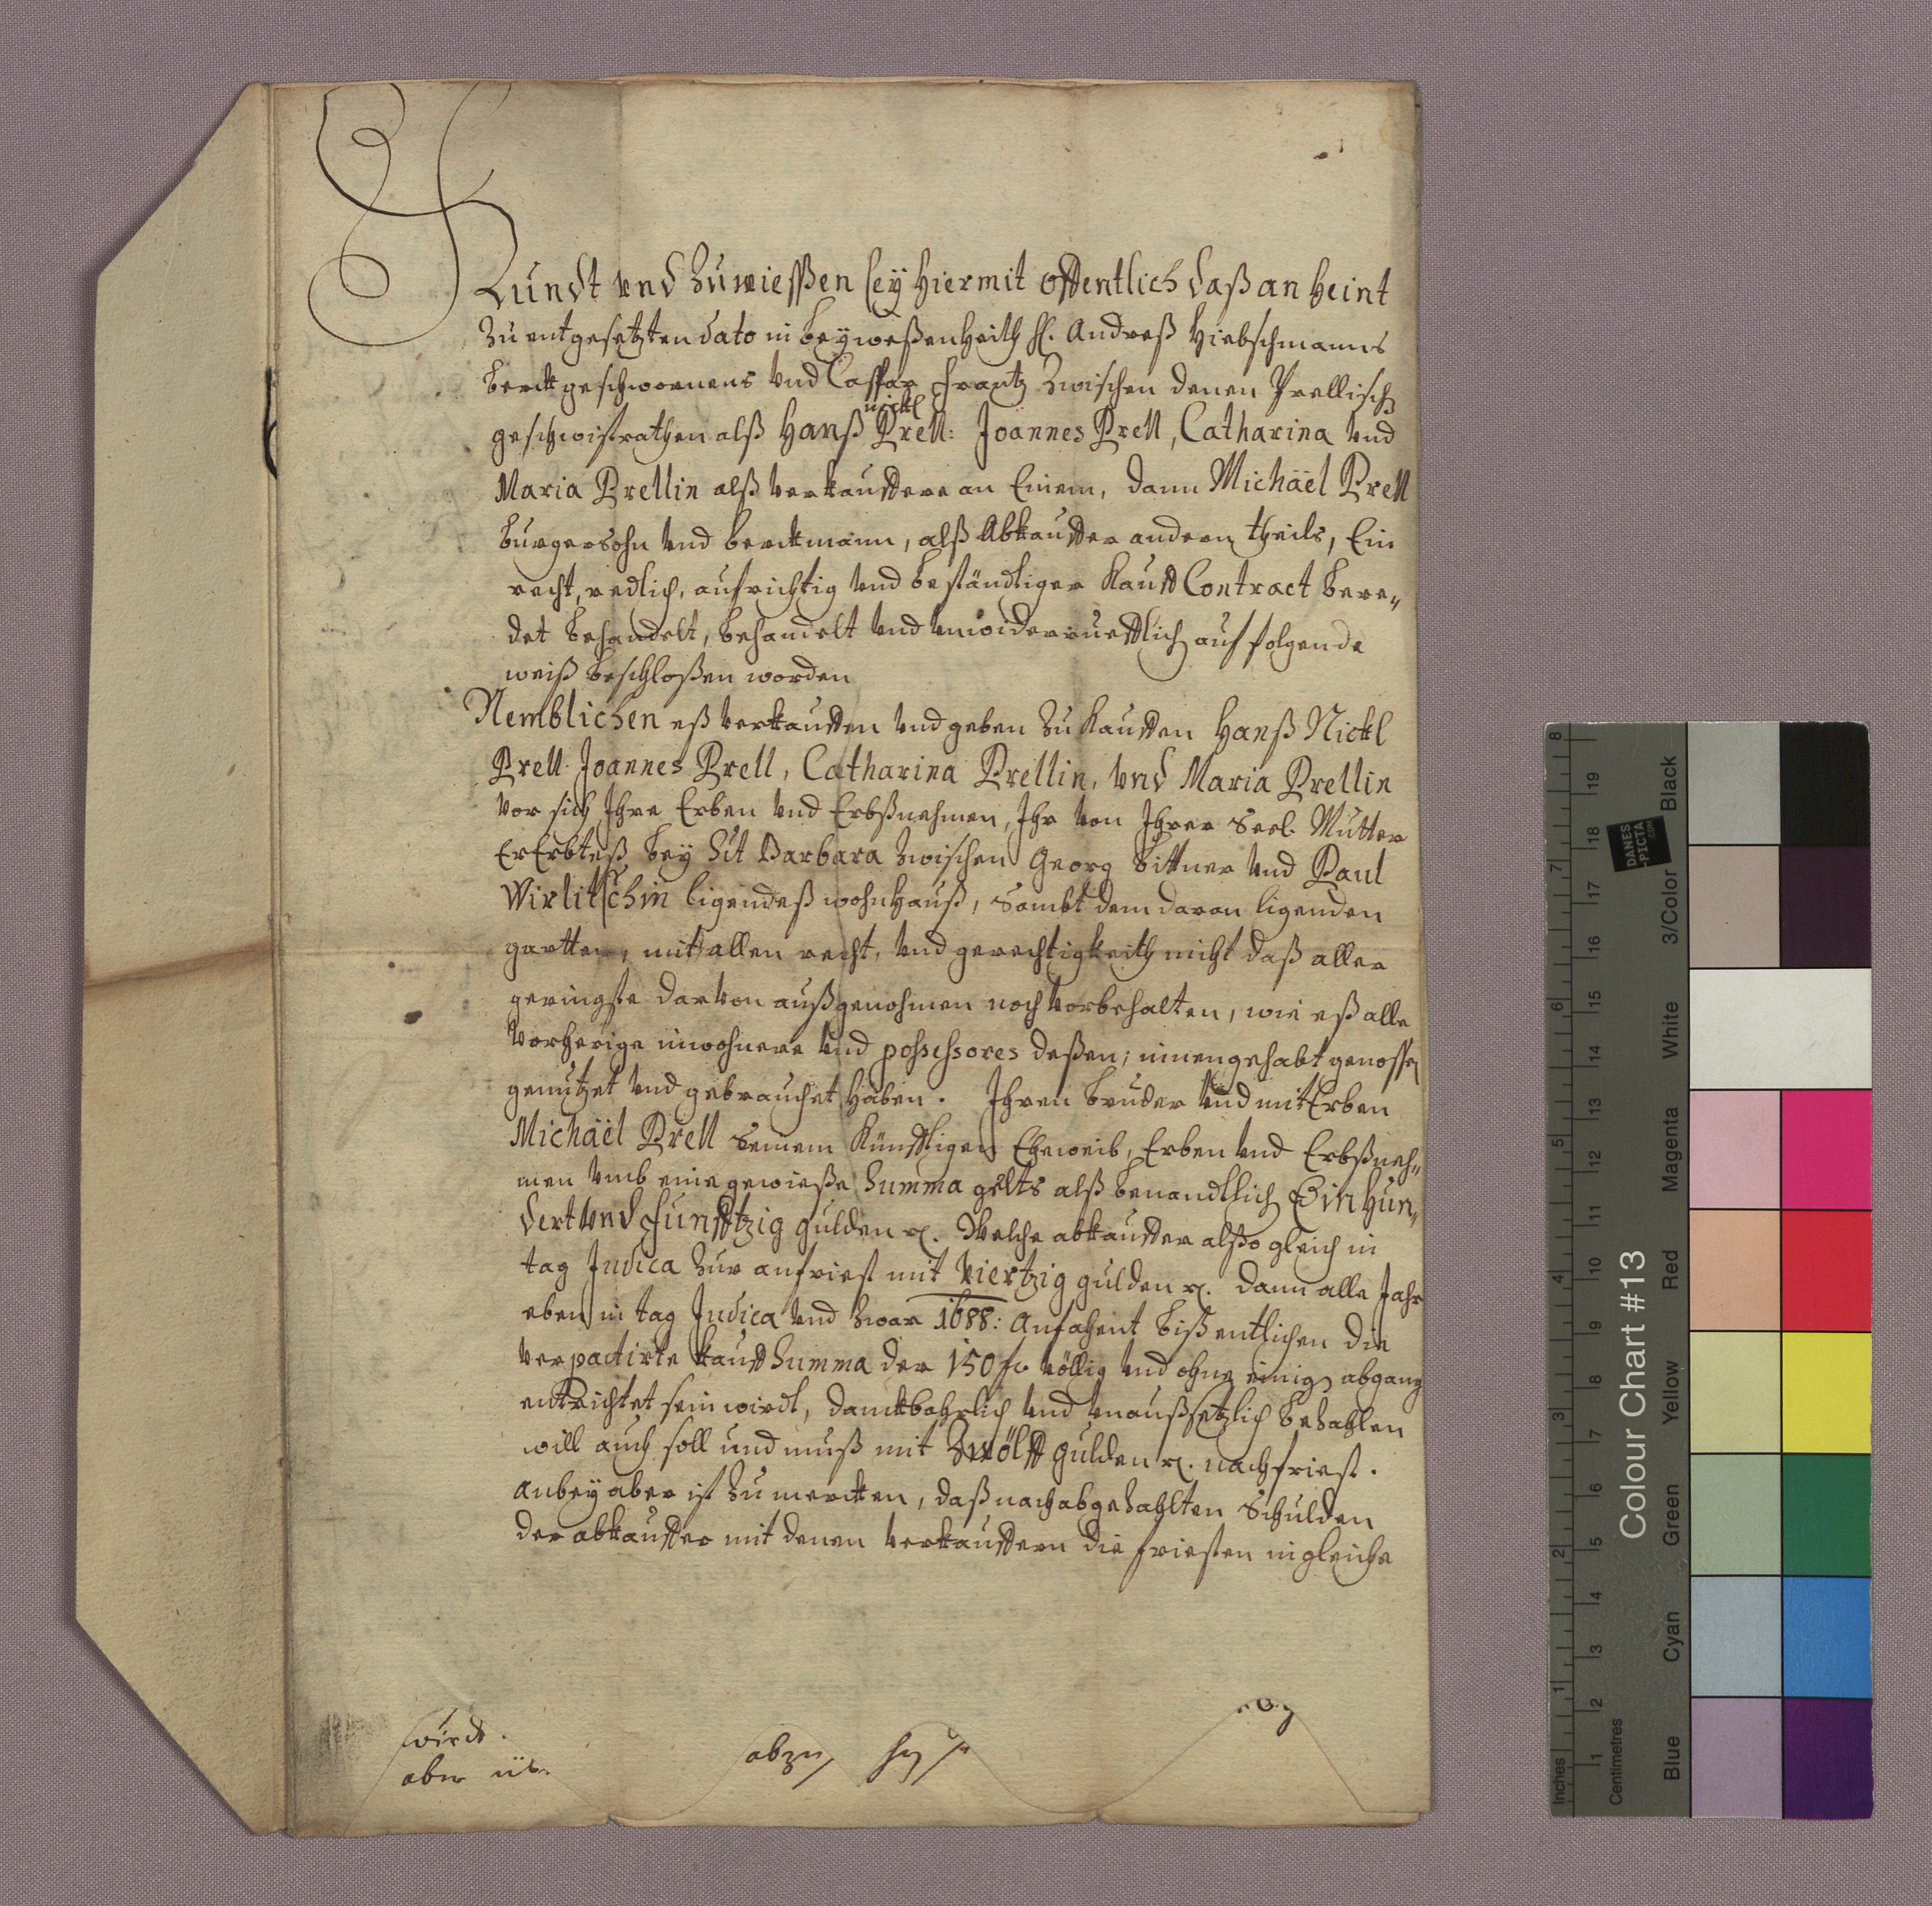 Kundt vnd Zuwiessen sey hiermit offentlich daß an heint
Zu entgesetzten dato in beyweßenheith H. Andreß Hiebschmanns
berckgeschwornens vnd Caspar Frantz Zwischen denen Prellisch
nickl
geschwistrathen alß Hanß Prell: Joannes Prell, Catharina vnd
Maria Prellin alß verkauffere an Einem, dann Michäel Prell
burgersohn vnd berckmann, alß Abkauffer andern theils, Ein
recht, redlich, aufrichtig vnd beständiger Kauff Contract bere„
det behandelt, behandelt vnd vnwiderruefflich auf folgende
weiß beschloßen worden
Nemblichen eß verkauffen vnd geben Zu Kauffen Hanß Nickl
Prell Joannes Prell, Catharina Prellin, vnd Maria Prellin
vor sich Ihre Erben vnd Erbßnehmen, Ihr von Ihrer Seel. Mutter
ErErbteß bey St Barbara Zwischen Georg Bittner vnd Paul
Wirlitschin ligendeß wohnHauß, Sambt dem daran ligenden
gartten, mit allen recht, vnd gerechtigkeith nicht daß aller
geringste darvon außgenohmen noch vorbehalten, wie eß alle
Vorherige inwohnere vnd possessores deßen; innengehabt genossen
genutzet vnd gebrauchet haben. Ihren bruder vnd mitErben
Michäel Prell Seinem Künfftigen Eheweib, Erben vnd Erbßneh„
men vmb eine gewieße Summa gelts alß benandtlich Ein hun„
dert vnd Funfftzig gulden r. Welche abkauffer alßo gleich in
tag Judica Zur anfriest mit Viertzig gulden r. dann alle Jahr
eben in tag Judica vnd Zwar 1688: Anfahent biß entlichen die
verpactirte kauff Summa der 150 f. völlig vnd ohne einigen abgang
entrichtet sein wirdt, danckbahrlich vnd vnaußsetzlich bezahlen
will auch soll und muß mit Zwölff gulden r. nachfriest.
Anbey aber ist Zu mercken, daß nach abgezahlten Schulden
der abkauffer mit denen verkauffern die friesten in gleiche
wirdt.
aber